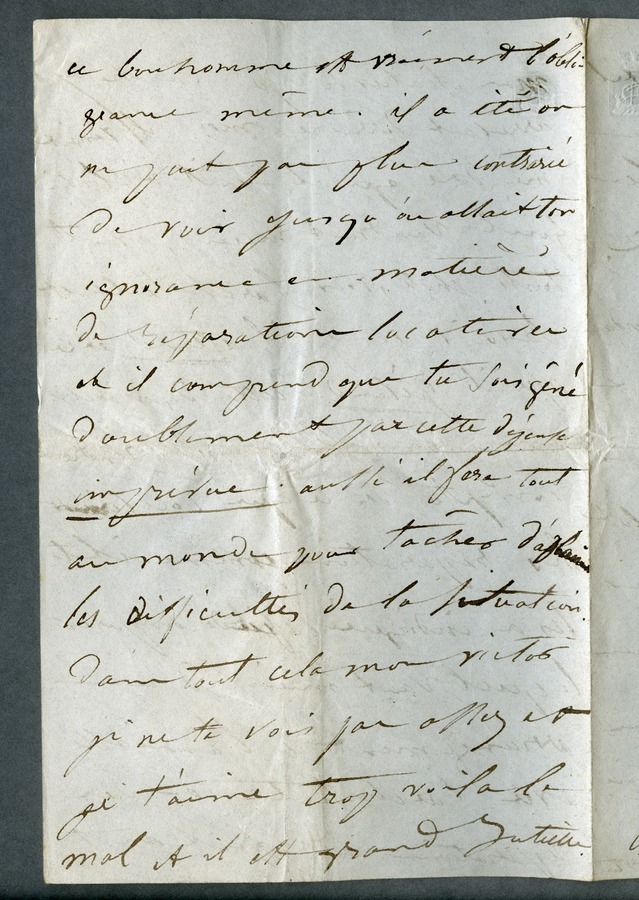 ce bonhomme est vraiment l'obli-
geance même. il a été on
ne peut pas plus contrarié
de voir jusqu'où allait ton
ignorance en matière
de réparations locatives
et il comprend que tu sois gêné
doublement par cette dépense
imprévue. aussi il fera tout
au monde pour tâcher d'applanir
les difficultés de la situation.
Dans tout cela mon victor
je ne te vois pas assez et
je t'aime trop voila le
mal et il est grand Juliette